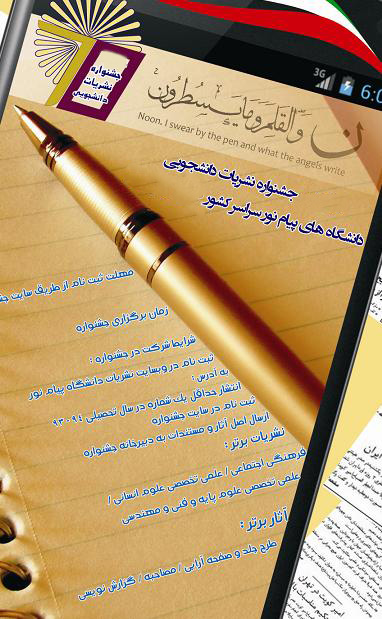 جشنواره
نشریات
دانشجویی
3G
6:0
ن وَالقَلَمِ وَمَا يَسْطُرُونَ
Noon, I swear by the pen and what the angels write
جشنواره نشریات دانشجویی
دانشگاه های پیام نور سراسر کشور
مهلت ثبت نام از طریق سایت جش
زمان برگزاری جشنواره
شرایط شرکت در جشنواره :
ثبت نام در وبسایت نشریات دانشگاه پیام نور
به آدرس :
انتشار حداقل یک شماره در سال تحصیلی 94-93
ثبت نام در سایت جشنواره
ارسال اصل آثار و مستندات به دبیرخانه جشنواره
نشریات برتر :
فرهنگی اجتماعی / علمی تخصصی علوم انسانی /
علمی تخصصی علوم پایه و فنی و مهندسی
آثار برتر :
طرح جلد و صفحه آرایی / مصاحبه / گزارش نویسی
ایران
امیر کویت در تهران